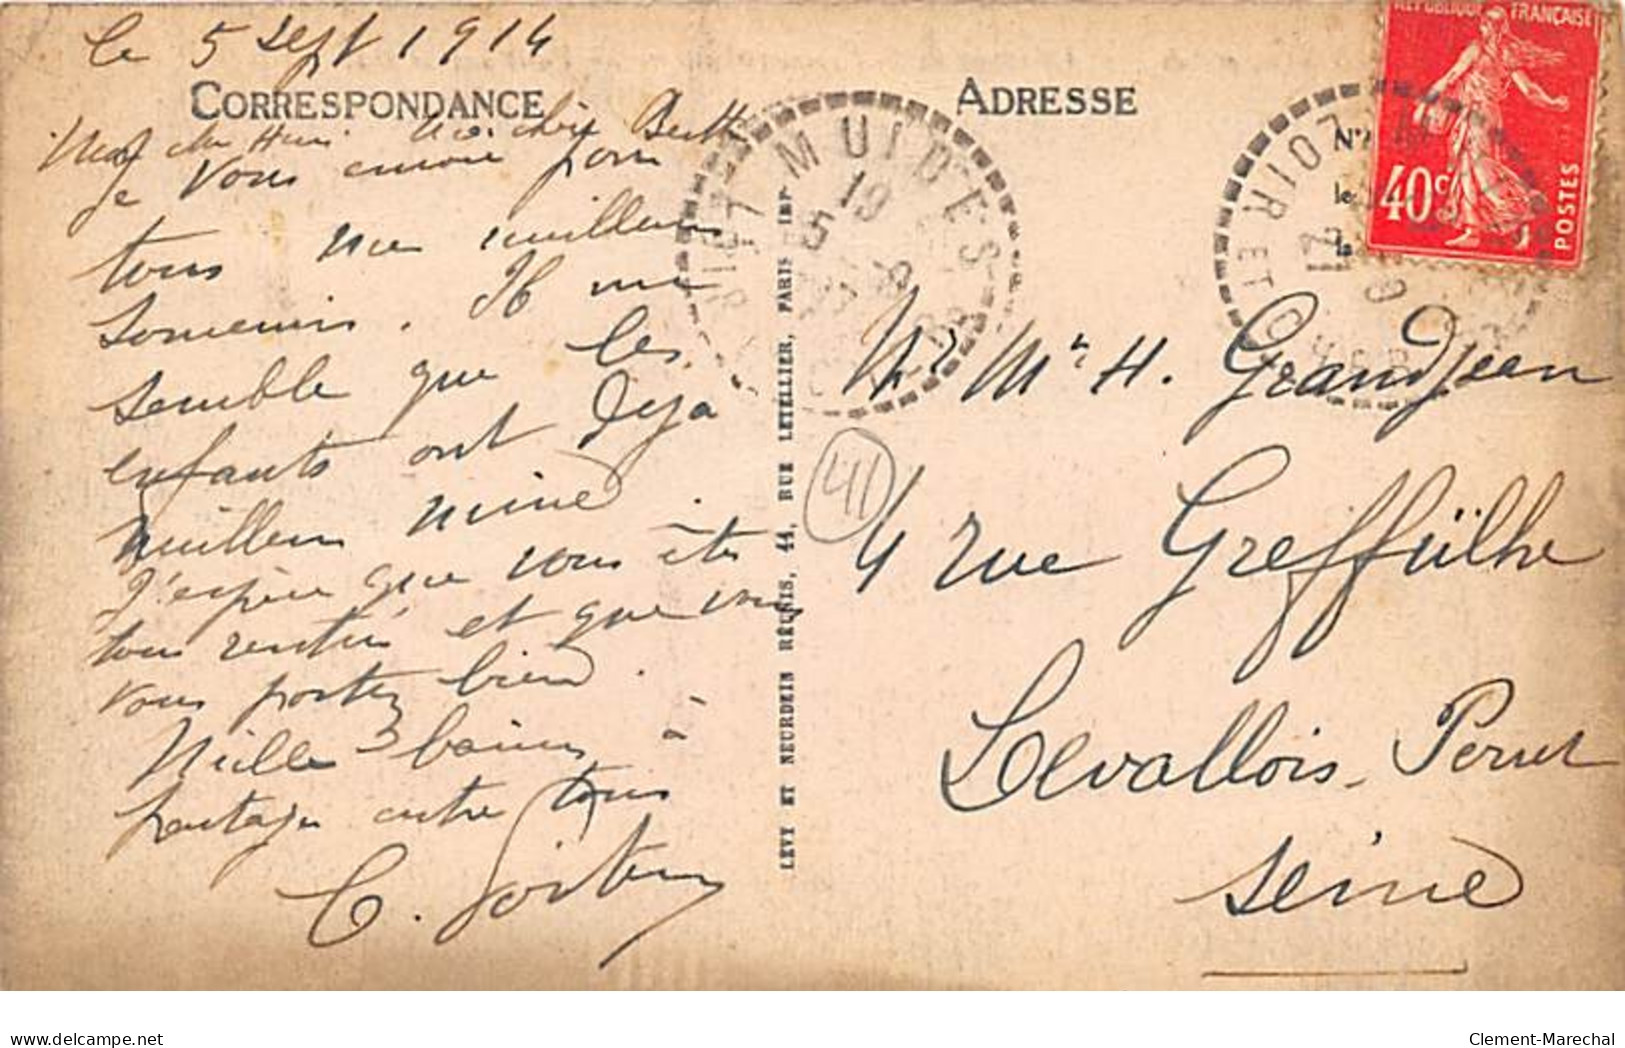 le 5 sept 1914
CORRESPONDANCE
Mes chers Henri Ma chère Berthe
Je vous envoie pour
tous mes meilleurs
souvenirs. Il me
semble que les
enfants ont déjà
meilleure mine.
J'espère que vous êtes
tous rentrés et que vous
vous portez bien.
Mille baisers à
partager entre tous
C.
LEVY ET NEURDEIN RÉUNIS, 44, RUE LETELLIER, PARIS IMP
MUIDES
19
5
41
ADRESSE
N'
le
la
RÉPUBLIQUE FRANÇAISE
40c
POSTES
LOIR ET
21
Mr Mme H. Grandjean
4 rue Greffülhe
Levallois-Perret
Seine
delcampe.net
Clement-Marechal